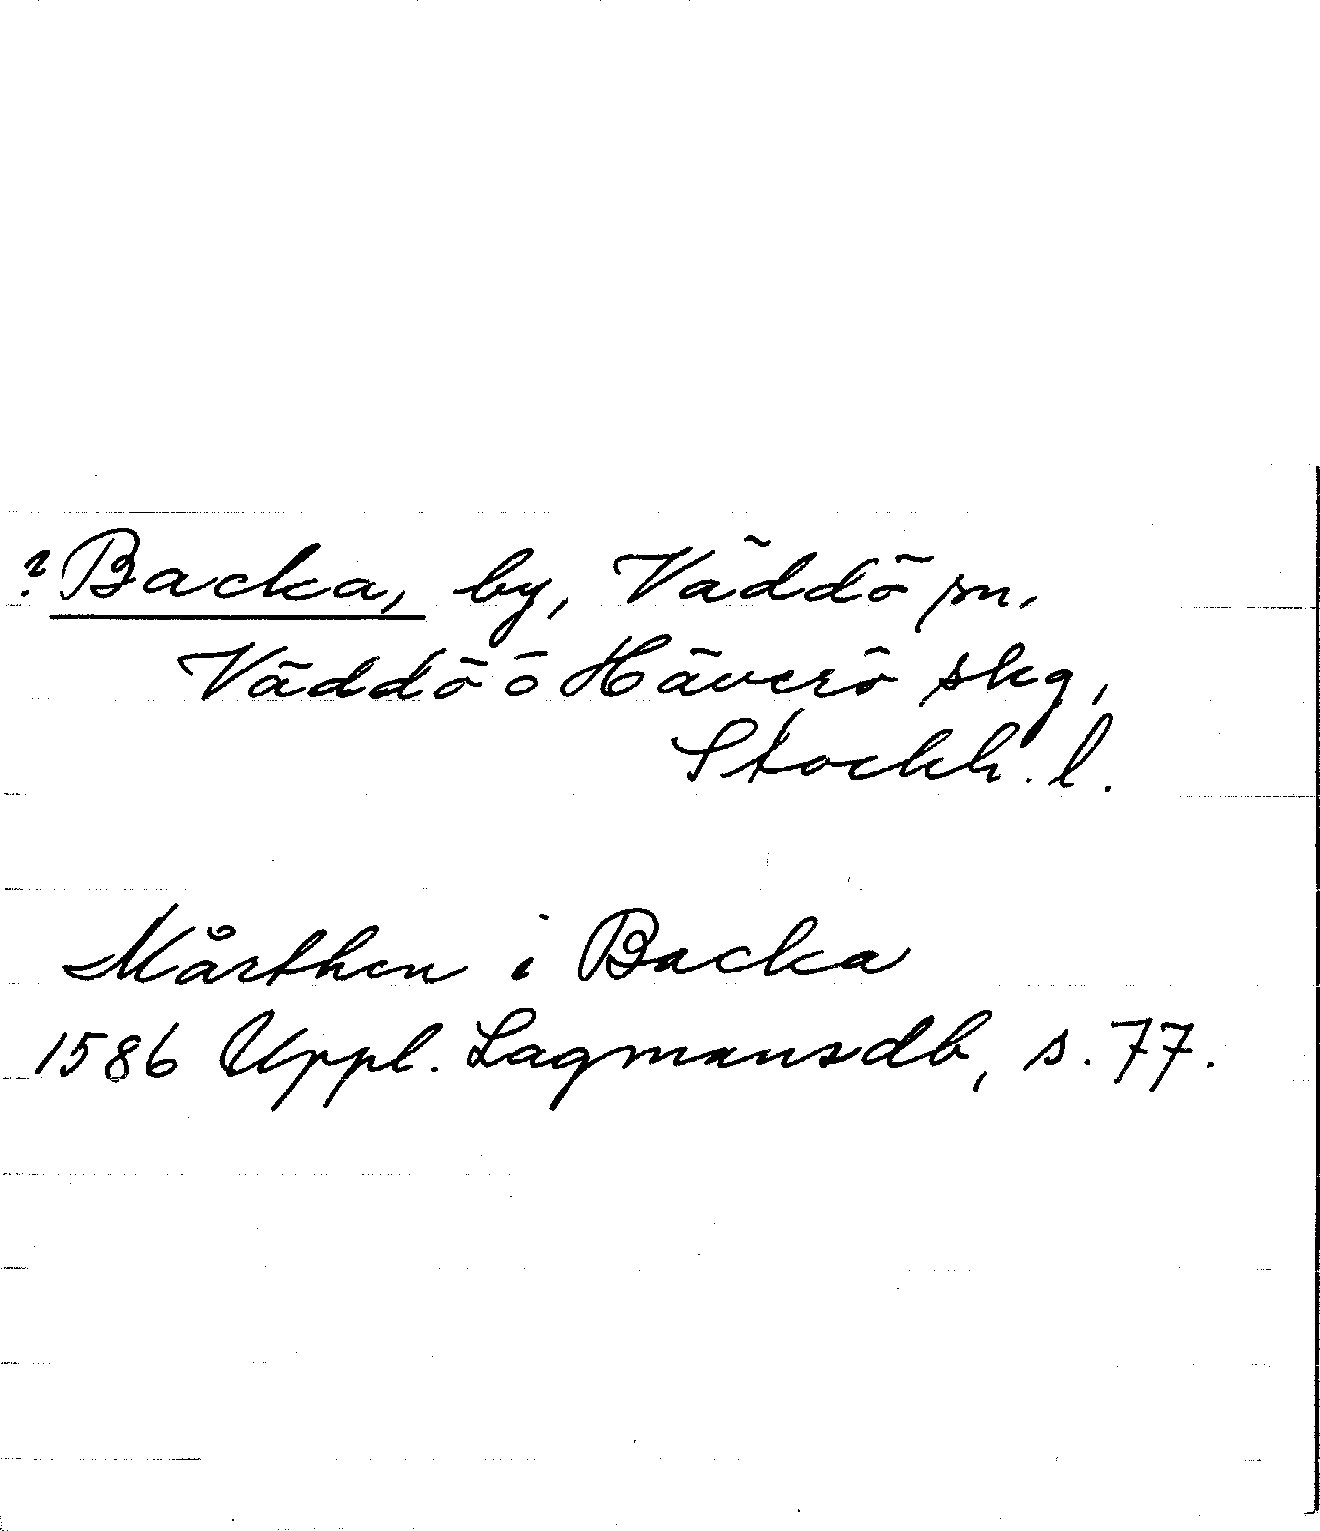 ? Backa, by, Väddö sn,
Väddö o Häverö skg,
Stockh. l.
Mårthen i Backa
1586 Uppl. Lagmansdb, s. 77.